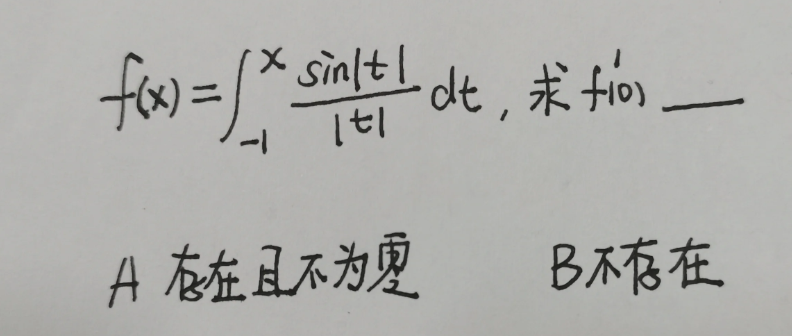 f(x)=∫_{-1}^{x} \frac{sin|t|}{|t|} dt, 求 f'(0) ___
A 存在且不为零 B 不存在